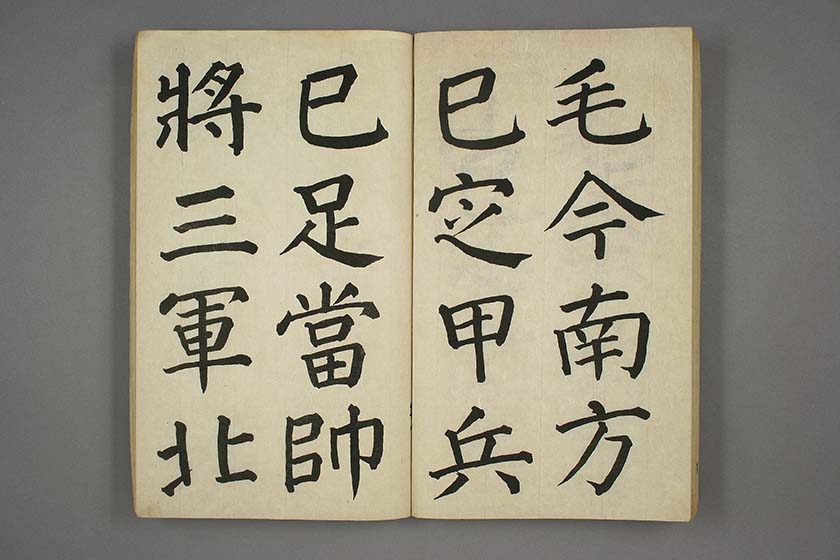 毛今南方
已定甲兵
已足當帥
將三軍北